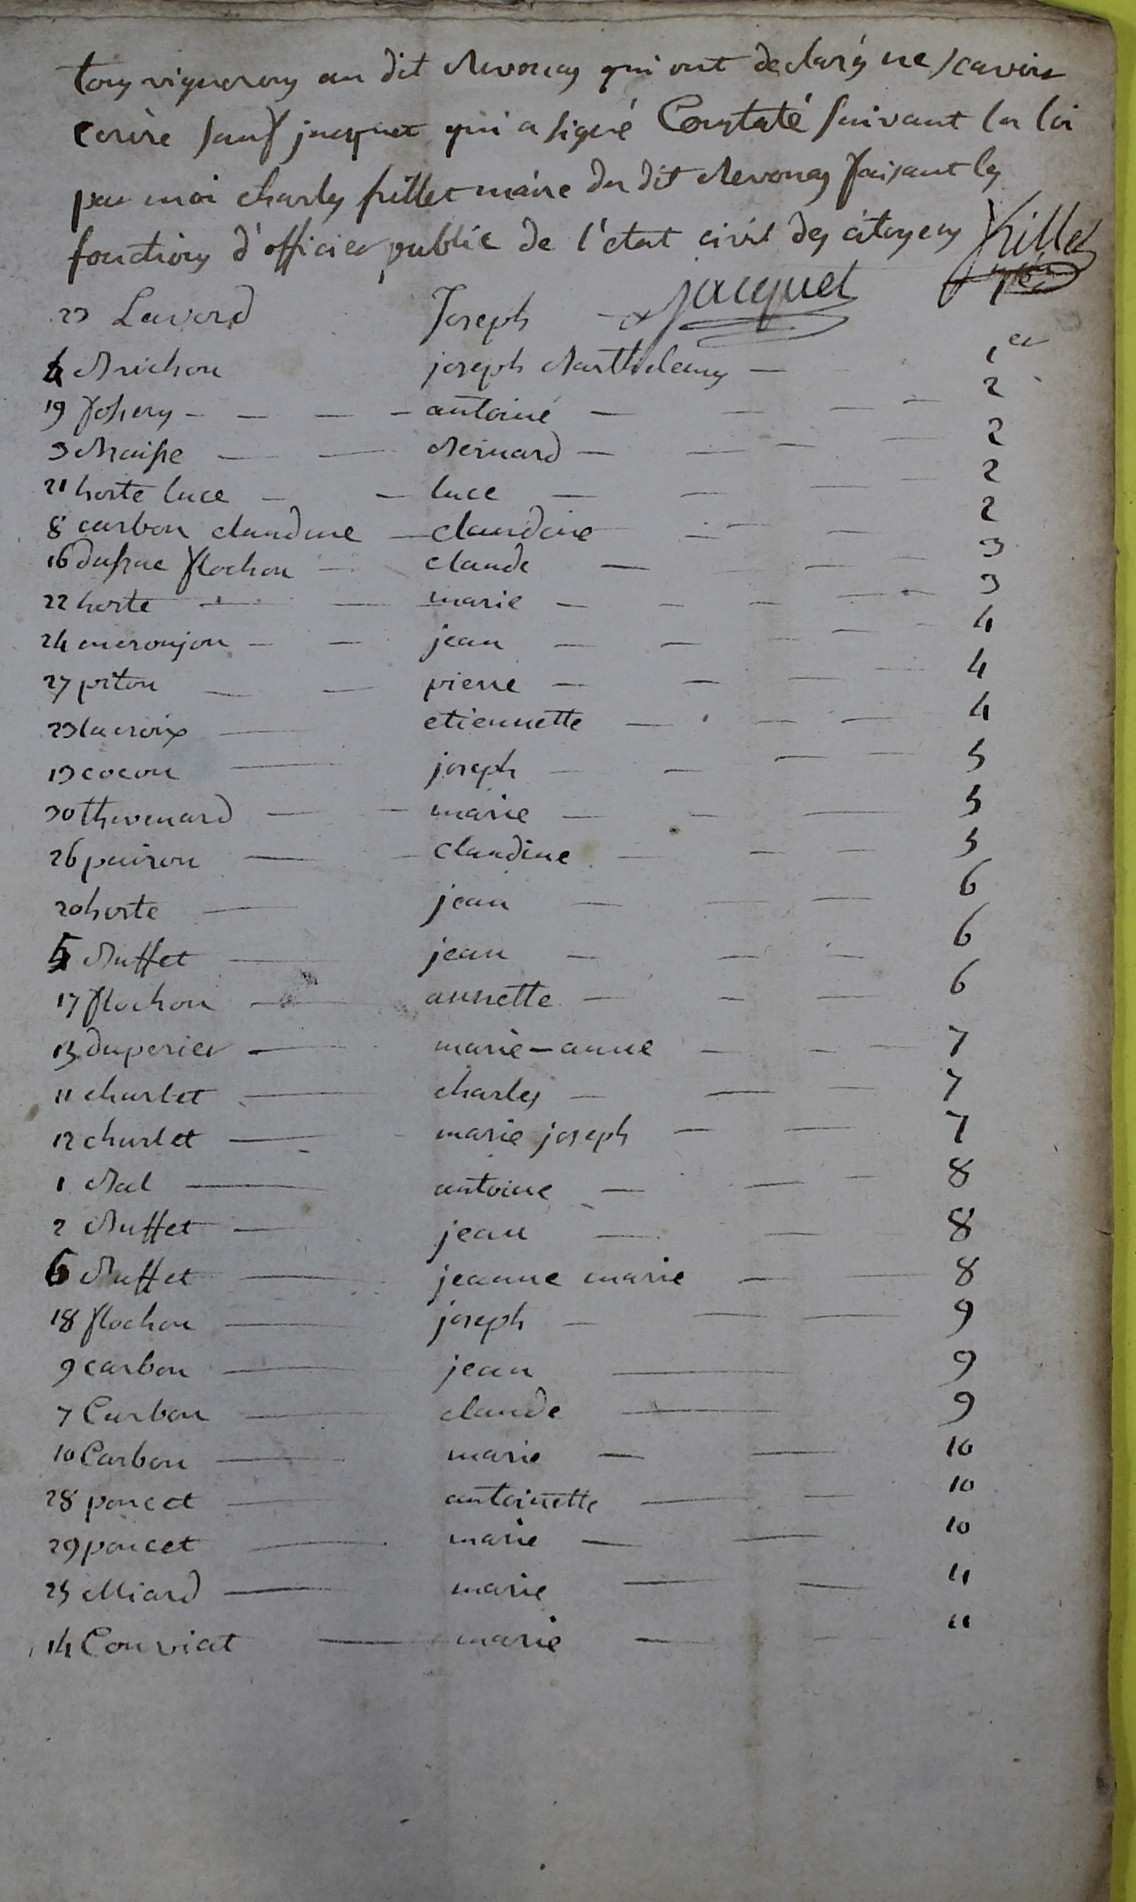 tous vignerons au dit Revonas qui ont declarés ne scavoir
ecrire sauf jacquet qui a signé Constaté suivant la loi
par moi charles frillet maire du dit Revonas faisant les
fonctions d'officier public de l'état civil des citoyens frillet
jacquet
23 Lavord Joseph
4 Brichon joseph Barthelemy 1er
19 antoine 2
3 Bernard 2
21 horte luce luce 2
8 carbon claudine claudine 2
16 flochon claude 3
22 horte marie 3
24 jean 4
27 piton pierre 4
23 lacroix etiennette 4
15 cocon joseph 5
30 thevenard marie 5
26 pairon claudine 5
20 horte jean 6
5 Buffet jean 6
17 flochon annette 6
13 duperier marie-anne 7
11 charlet charles 7
12 charlet marie joseph 7
1 Bal antoine 8
2 Buffet jean 8
6 Buffet jeanne marie 8
18 flochon joseph 9
9 carbon jean 9
7 Carbon claude 9
10 Carbon marie 10
28 poncet antoinette 10
29 poncet marie 10
25 Miard marie 11
14 Couviat marie 11